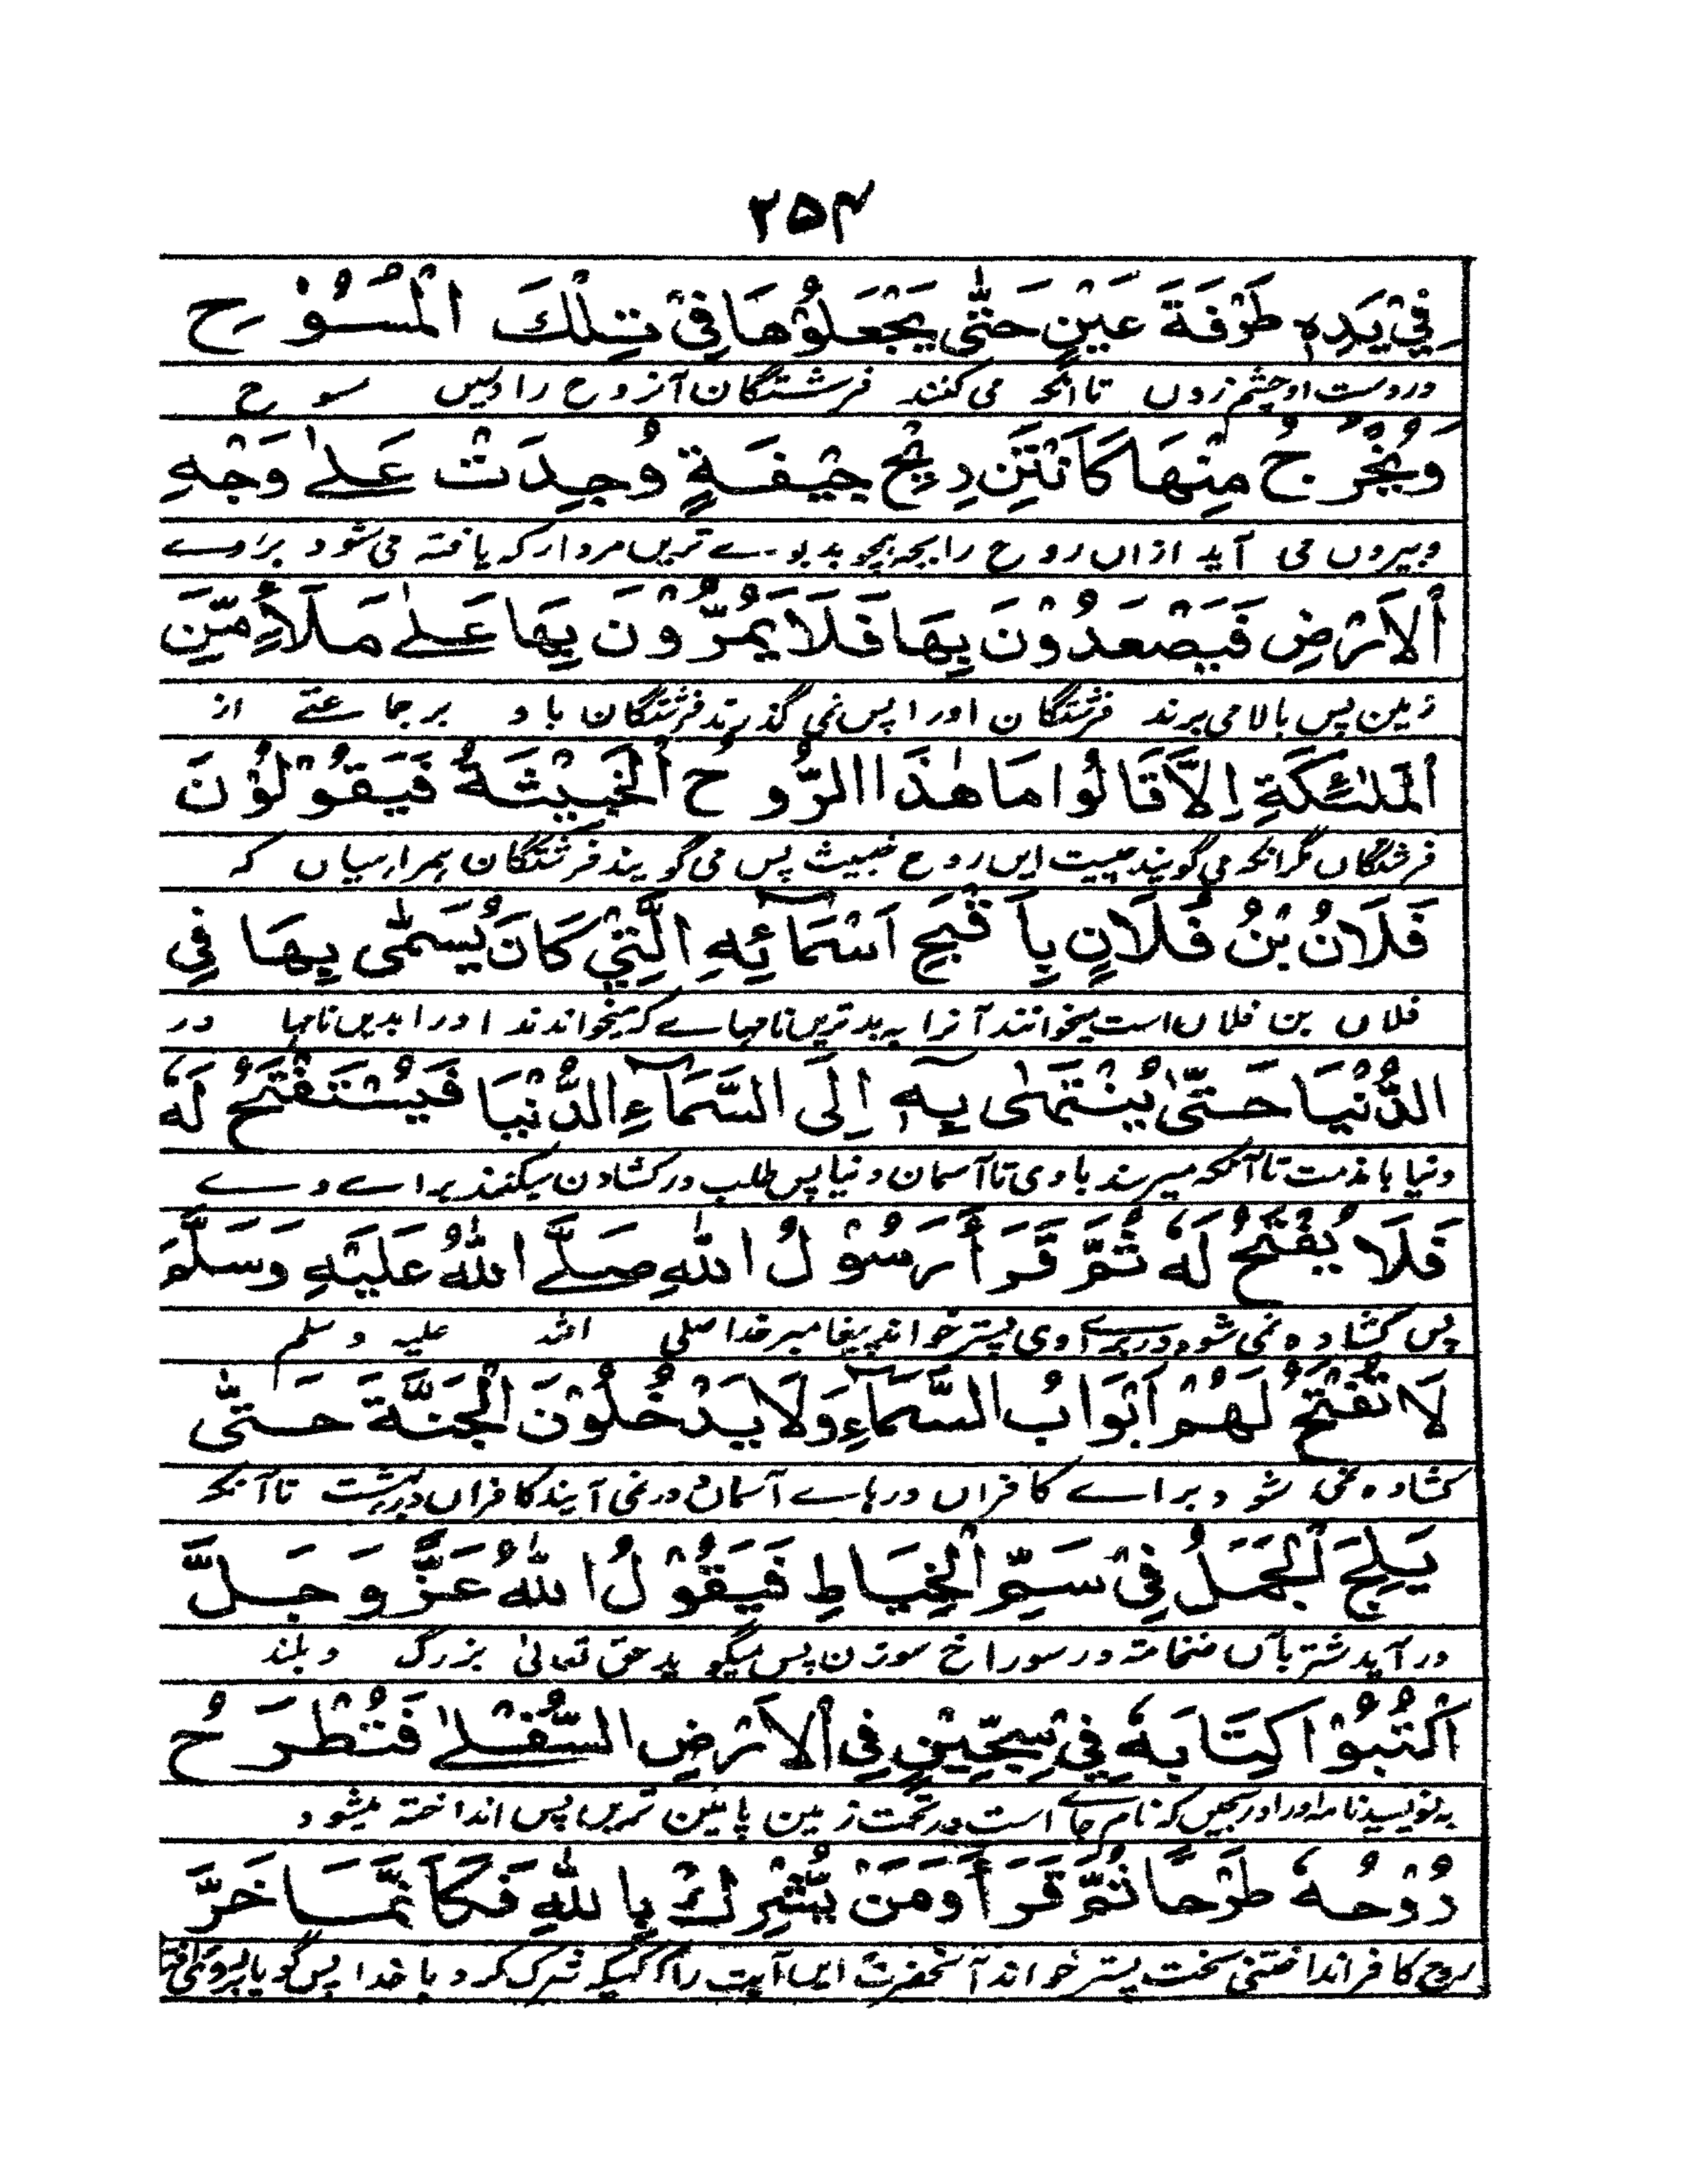 ۲۵۴
فِيْ يَدِهٖ طَرْفَةَ عَيْنٍ حَتّٰى يَجْعَلُوْهَا فِيْ تِلْكَ الْمُسُوْحِ
در دست او چشم زدن تا آنکه می کنند فرشتگان آنروح را دریں مسوح
وَيُخْرُجُ مِنْهَا كَانْتَنِ رِيْحِ جِيْفَةٍ وُجِدَتْ عَلٰے وَجْهِ
و بیروں می آید ازاں روح رایحہ ہمچو بدبوے ترین مردار کہ یافتہ می شود بر روے
الْاَرْضِ فَيَصْعَدُوْنَ بِهَا فَلَا يَمُرُّوْنَ بِهَا عَلٰے مَلَأٍ مِّنَ
زمین پس بالا می برند فرشتگان اورا پس نمی گذرند فرشتگان باو بر جماعتے از
الْمَلٰئِكَةِ اِلَّا قَالُوا مَا هٰذَا الرُّوحُ الْخَبِيْثَةُ فَيَقُوْلُوْنَ
فرشتگاں مگر آنکہ می گویند چیست ایں روح خبیث پس می گویند فرشتگان کہ
فُلَانُ بْنُ فُلَانٍ بِاَقْبَحِ اَسْمَآئِهِ الَّتِيْ كَانَ يُسَمّٰى بِهَا فِي
فلاں بن فلاں است میخوانند آنرا بہ بدترین نامہاے کہ میخواندند اورا بدیں نامہا در
الدُّنْيَا حَتّٰى يُنْتَهٰى بِهٖ اِلَى السَّمَآءِ الدُّنْيَا فَيُسْتَفْتَحُ لَهٗ
دنیا تا آنکہ میرسند با وی تا آسمان دنیا پس طلب در کشادن میکنند براے وے
فَلَا يُفْتَحُ لَهٗ ثُمَّ قَرَأَ رَسُوْلُ اللّٰهِ صَلَّے اللّٰهُ عَلَيْهِ وَسَلَّمَ
پس کشادہ نمی شود در براے وی پستر خواند پیغامبر خدا صلی اللہ علیہ وسلم
لَا تُفْتَحُ لَهُمْ اَبْوَابُ السَّمَآءِ وَلَا يَدْخُلُوْنَ الْجَنَّةَ حَتّٰى
کشادہ نمی شود براے کافراں درہاے آسمان و در نمی آیند کافراں در بہشت تا آنکہ
يَلِجَ الْجَمَلُ فِيْ سَمِّ الْخِيَاطِ فَيَقُوْلُ اللّٰهُ عَزَّ وَجَلَّ
در آید شتر بآں ضخامتہ در سوراخ سوزن پس میگوید حق تعالیٰ بزرگ و بلند
اُكْتُبُوْا كِتَابَهٗ فِيْ سِجِّيْنٍ فِي الْاَرْضِ السُّفْلٰے فَتُطْرَحُ
بہ نویسید نامہ اورا در سجیں کہ نام جاے است در تحت زمین پائین ترین پس انداختہ میشود
رُوْحُهٗ طَرْحًا ثُمَّ قَرَأَ وَمَنْ يُّشْرِكْ بِاللّٰهِ فَكَاَنَّمَا خَرَّ
روح کافر انداختنی سخت پستر خواند آنحضرت ایں آیت را کسیکہ شرک کرد با خدا پس گویا